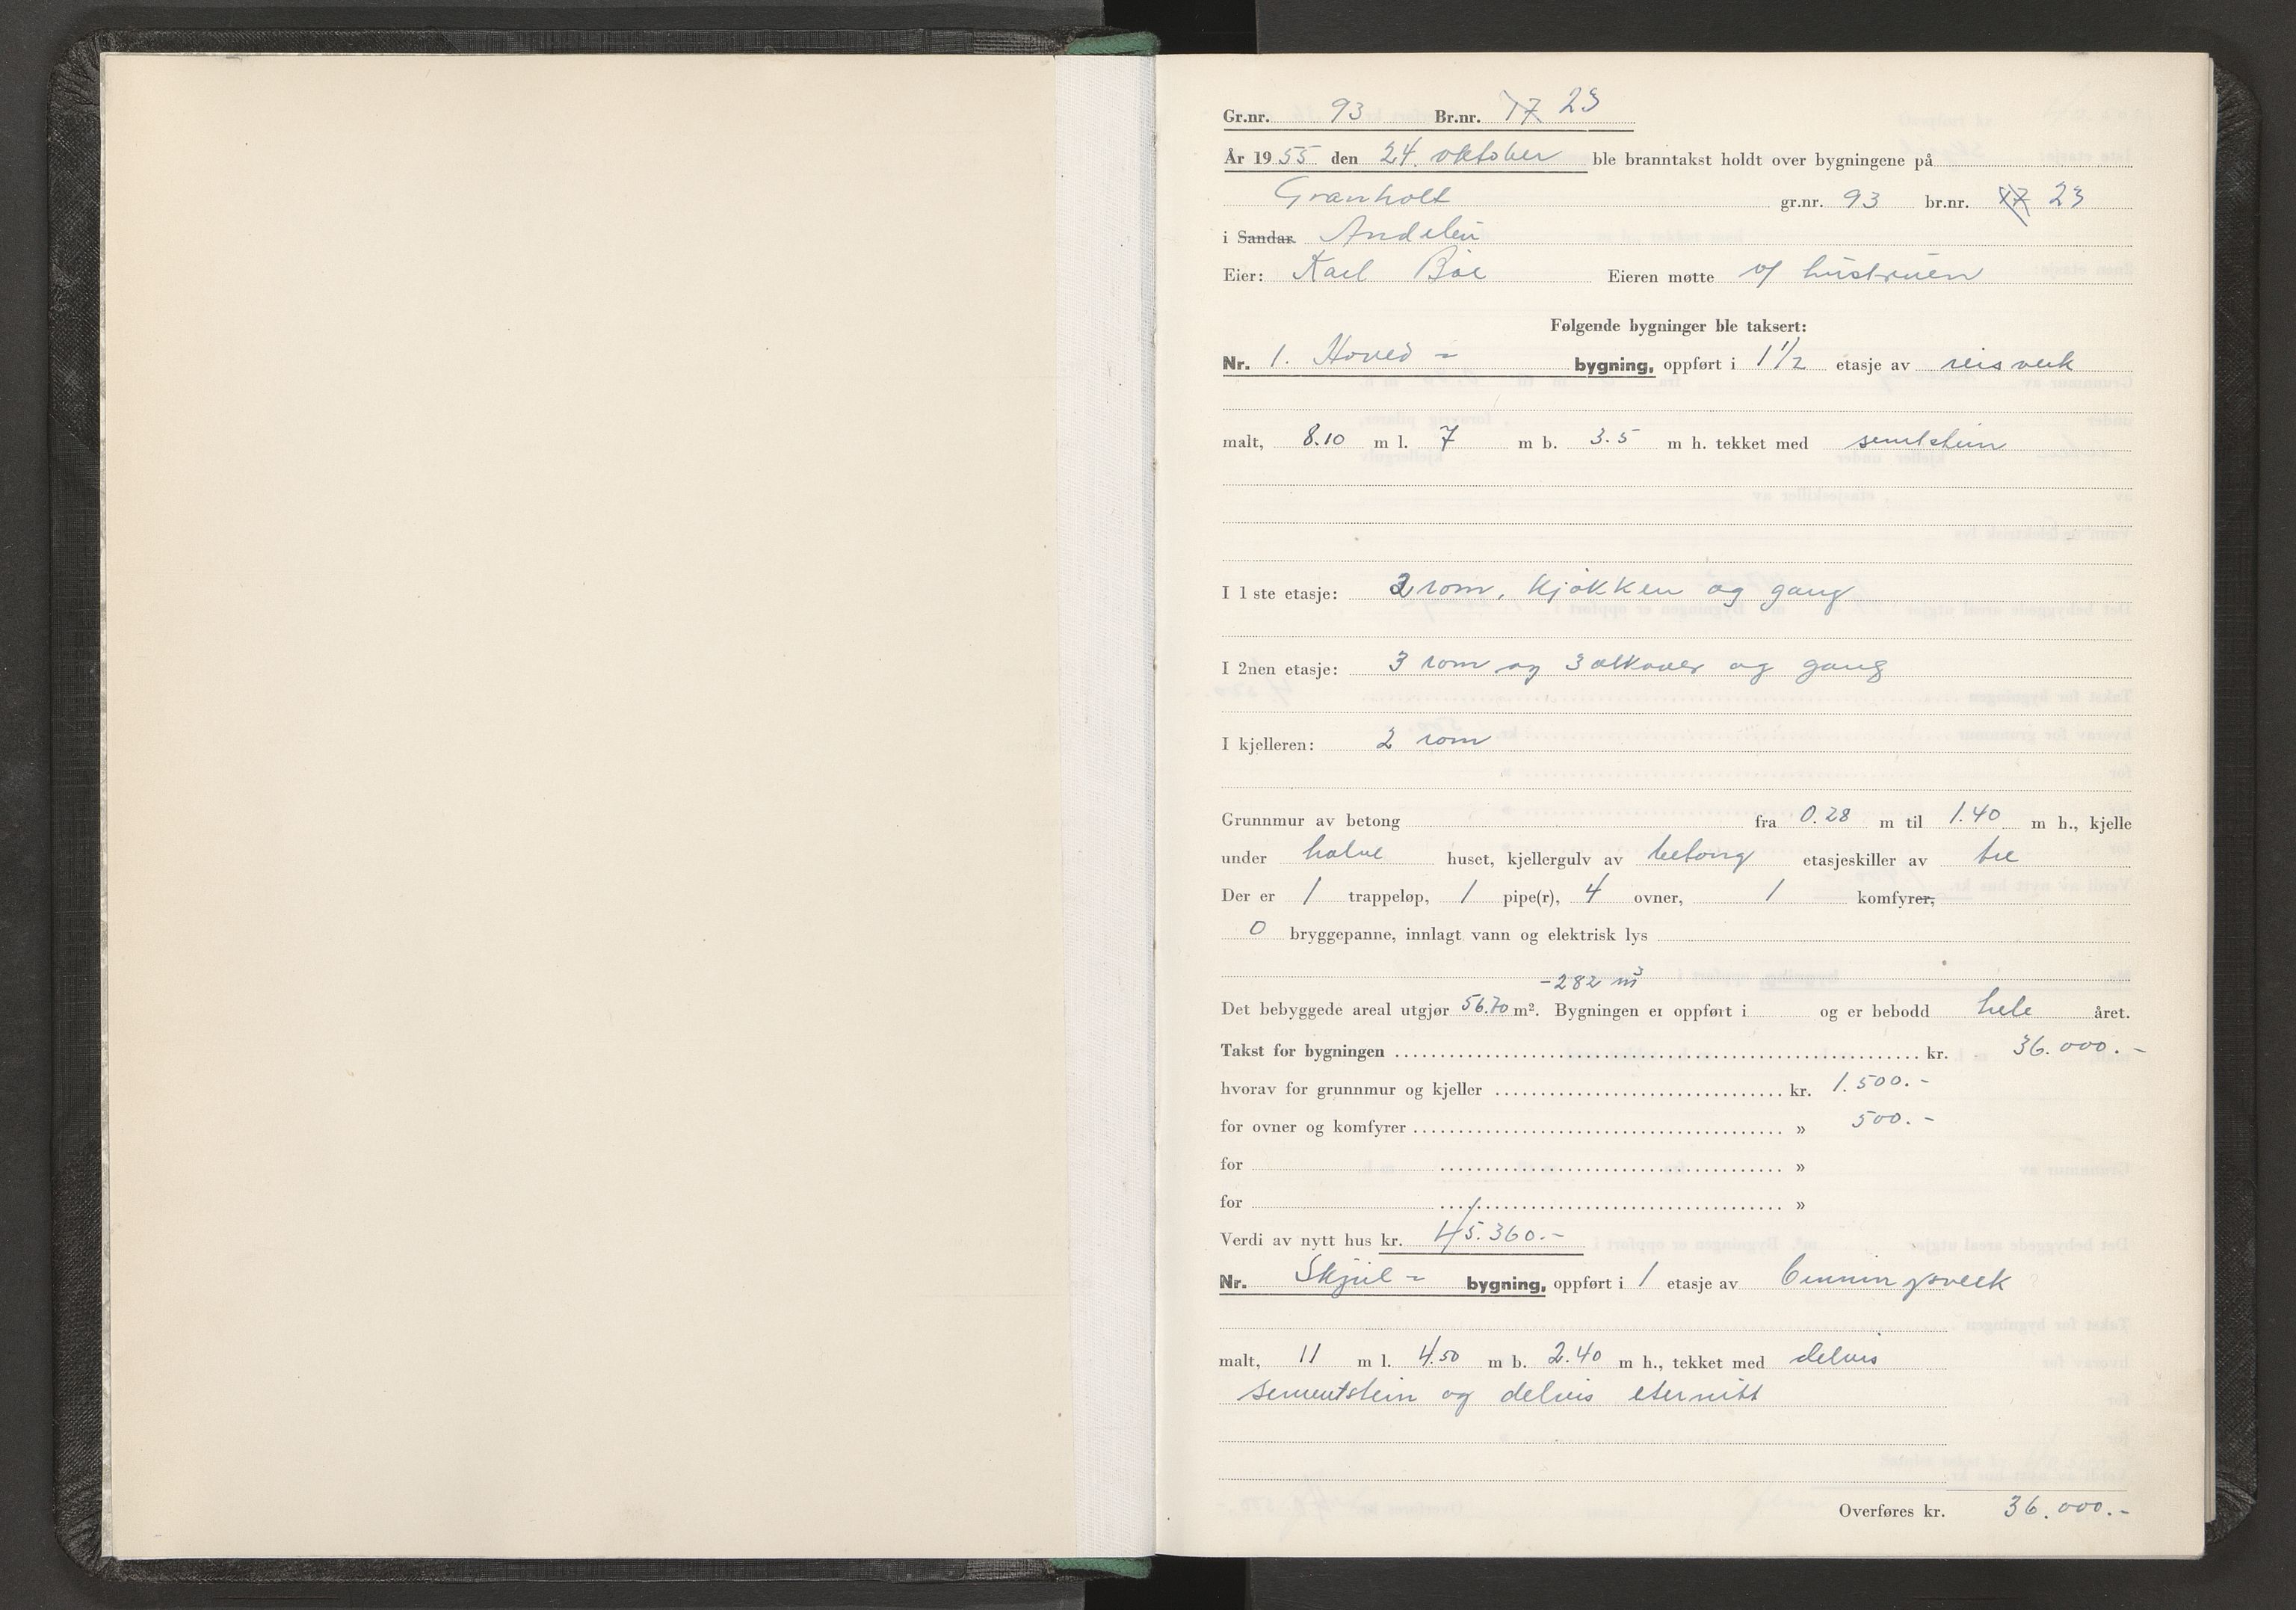 Gr.nr. 93 Br.nr. 17 23
År 1955 den 24. oktober ble branntakst holdt over bygningene på
Granholt gr.nr. 93 br.nr. 17 23
i Sandar Andebu
Eier: Karl Bøe Eieren møtte v/ hustruen
Følgende bygninger ble taksert:
Nr. 1. Hoved - bygning, oppført i 1 1/2 etasje av reisverk
malt, 8.10 m l. 7 m b. 3.5 m h. tekket med
I 1 ste etasje: 2 rom, kjøkken og gang
I 2nen etasje: 3 rom og 3 alkover og gang
I kjelleren: 2 rom
Grunnmur av betong fra 0.28 m til 1.40 m h., kjelle
under halve huset, kjellergulv av betong etasjeskiller av tre
Der er 1 trappeløp, 1 pipe(r), 4 ovner, 1 komfyrer,
0 bryggepanne, innlagt vann og elektrisk lys
-282 m³
Det bebyggede areal utgjør 56.70 m². Bygningen er oppført i og er bebodd hele året.
Takst for bygningen kr. 36.000.-
hvorav for grunnmur og kjeller kr. 1.500.-
for ovner og komfyrer » 500.-
for »
for »
Verdi av nytt hus kr. 45.360.-
Nr. Skjul - bygning, oppført i 1 etasje av
malt, 11 m l. 4.50 m b. 2.40 m h., tekket med delvis
sementstein og delvis eternitt
Overføres kr. 36.000.-